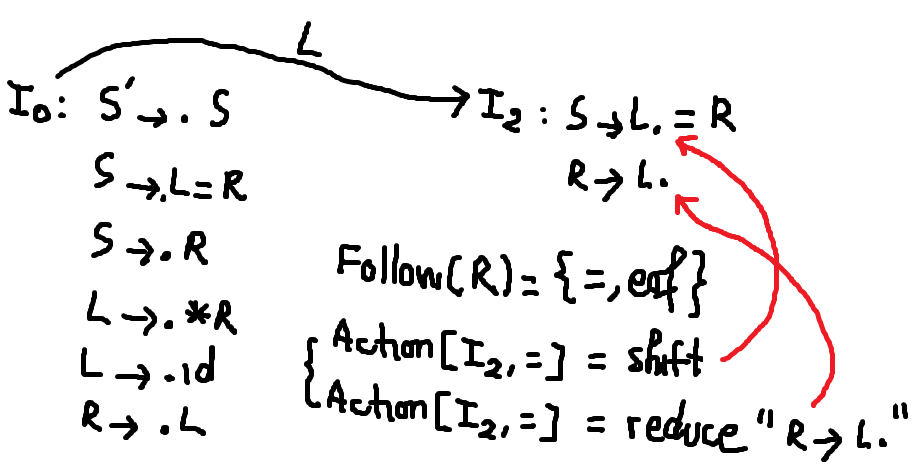 L
I₀: S' → . S
S → . L = R
S → . R
L → . * R
L → . id
R → . L
I₂ : S → L . = R
R → L .
Follow(R) = {=, eof}
{ Action[I₂, =] = shift
Action[I₂, =] = reduce "R → L."